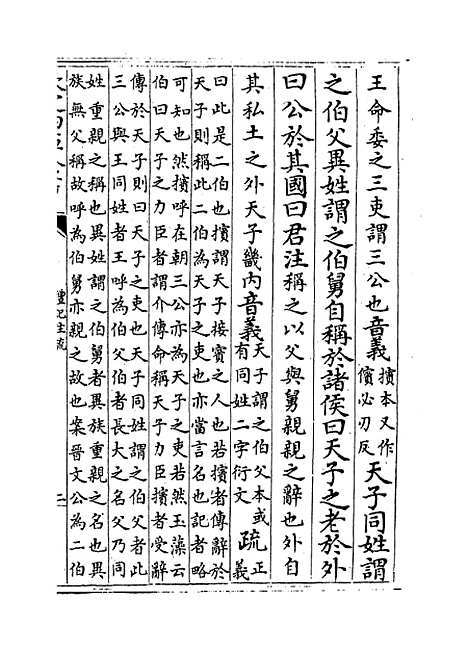 王命委之三吏謂三公也音義擯本又作儐必刃反天子同姓謂
之伯父異姓謂之伯舅自稱於諸侯曰天子之老於外
曰公於其國曰君注稱之以父與舅親親之辭也外自
其私土之外天子畿內音義天子謂之伯父本或有同姓二字衍文疏正義
曰此是二伯也擯謂天子接賓之人也若擯者傳辭於
天子則稱此二伯為天子之吏也亦當言名也記者略
可知也然擯呼在朝三公亦為天子之吏若然玉藻云
伯曰天子之力臣者謂介傳命稱天子力臣擯者受辭
傳於天子則曰天子之吏也天子同姓謂之伯父者此
三公與王同姓者王呼為伯父伯者長大之名父乃同
姓重親之稱也異姓謂之伯舅者異族重親之名也異
族無父稱故呼為伯舅亦親之故也案晉文公為二伯
禮記注疏